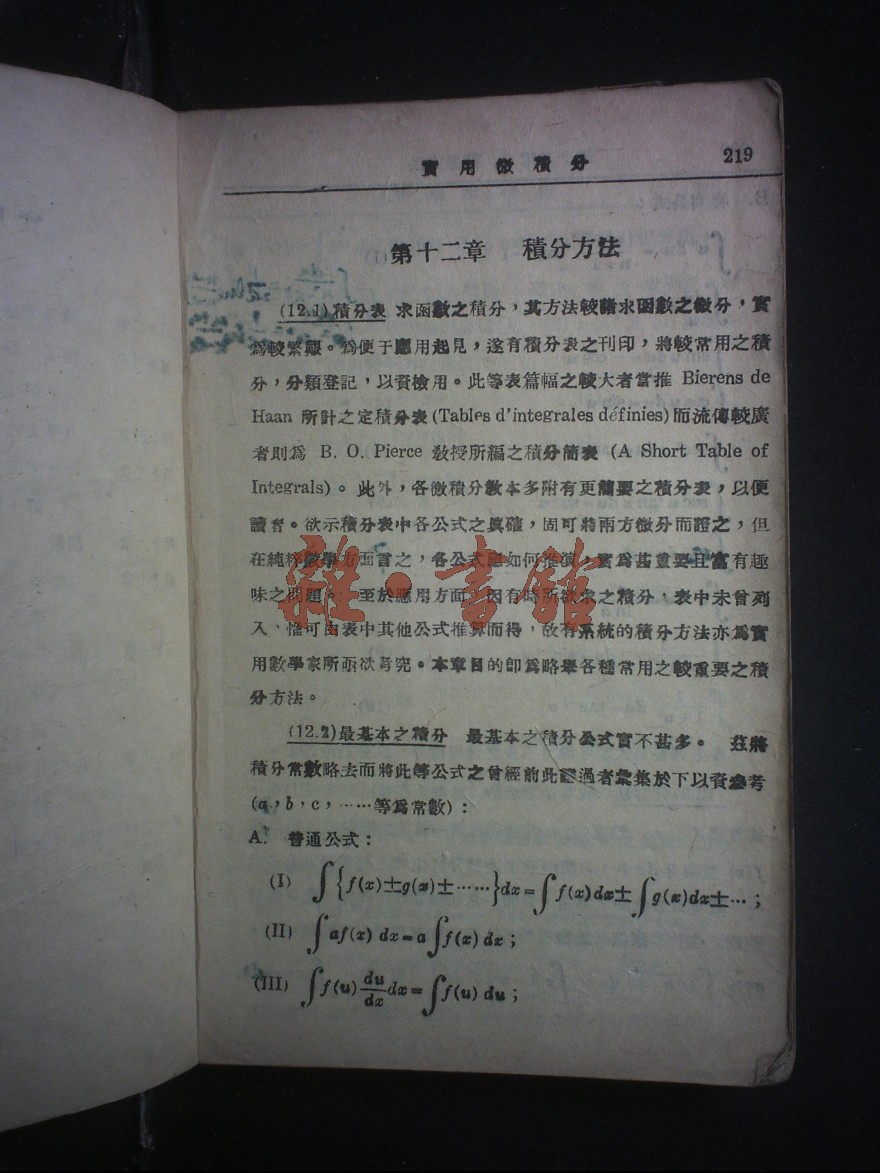 實用微積分 219
第十二章 積分方法
(12.1)積分表 求函數之積分，其方法較諸求函數之微分，實
為較繁難。為便于應用起見，遂有積分表之刊印，將較常用之積
分，分類登記，以資檢用。此等表篇幅之較大者當推 Bierens de
Haan 所計之定積分表(Tables d'integrales définies)而流傳較廣
者則為 B. O. Pierce 敎授所編之積分簡表 (A Short Table of
Integrals)。此外，各微積分敎本多附有更簡要之積分表，以便
讀者。欲示積分表中各公式之眞確，固可將兩方微分而證之，但
在純粹數學方面言之，各公式應如何推演，實為甚重要且富有趣
味之問題。至於應用方面，因有時所欲求之積分，表中未曾列
入，惟可由表中其他公式推算而得，故有系統的積分方法亦為實
用數學家所亟欲考究。本章目的卽為略舉各種常用之較重要之積
分方法。
(12.2)最基本之積分 最基本之積分公式實不甚多。茲將
積分常數略去而將此等公式之曾經前此證過者彙集於下以資參考
(a，b，c，……等為常數)：
A. 普通公式：
(I) ∫{f(x)±g(x)±……}dx=∫f(x)dx±∫g(x)dx±…；
(II) ∫af(x) dx=a∫f(x) dx；
(III) ∫f(u) du/dx dx=∫f(u) du；
雜·書館